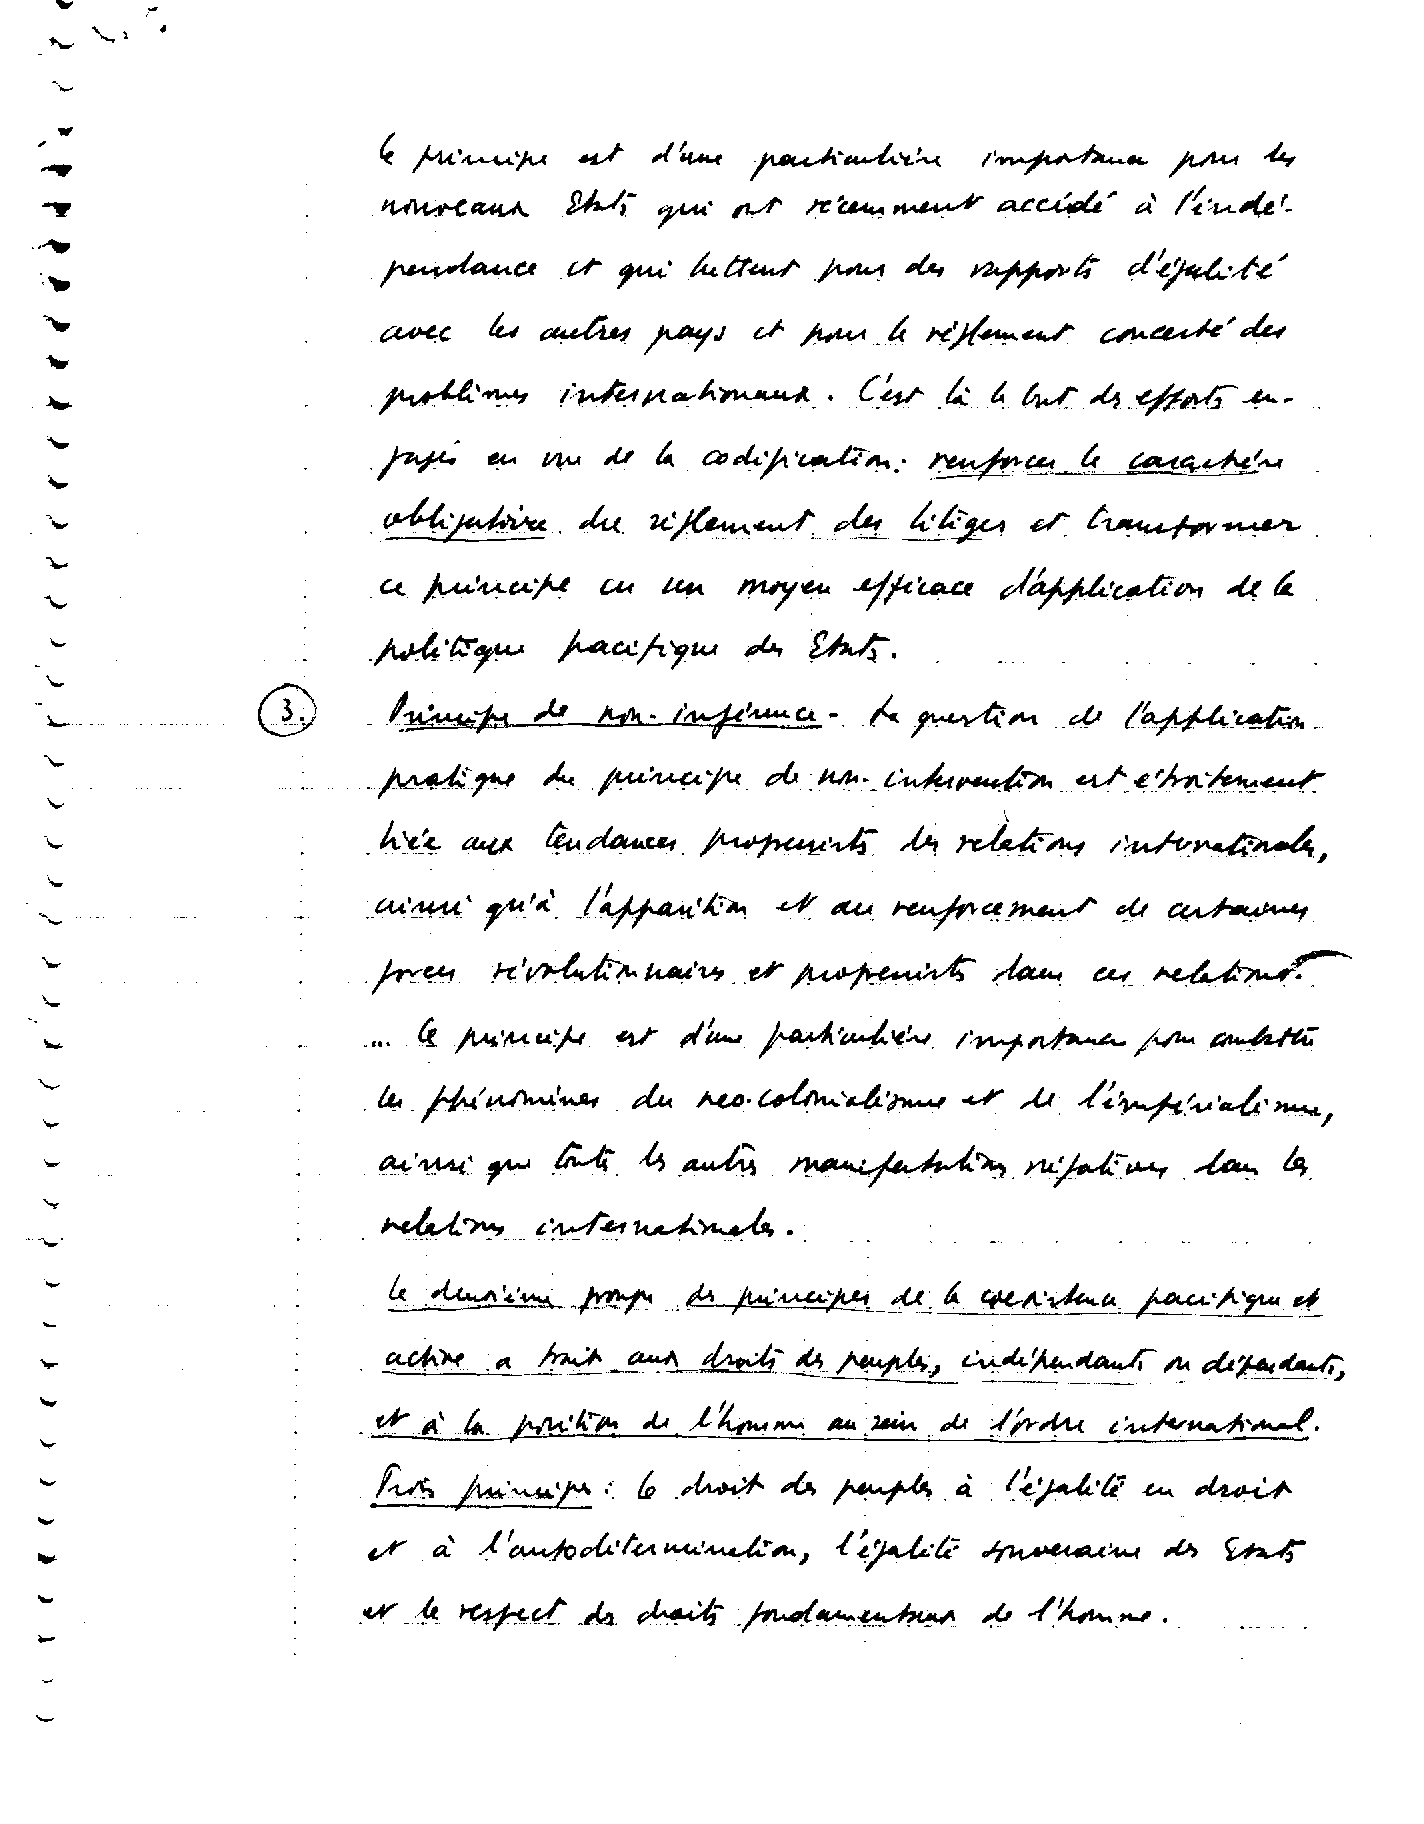 Ce principe est d'une particulière importance pour les
nouveaux Etats qui ont récemment accédé à l'indé-
pendance et qui luttent pour des rapports d'égalité
avec les autres pays et pour le réglement concerté des
problèmes internationaux. C'est là le but des efforts en-
gagés en vue de la codification: renforcer le caractère
obligatoire du réglement des litiges et transformer
ce principe en un moyen efficace d'application de la
politique pacifique des Etats.
3. Principe de non-ingérence - La question de l'application
pratique du principe de non-intervention est étroitement
liée aux tendances progressists des relations internationales,
ainsi qu'à l'apparition et au renforcement de certaines
forces révolutionnaires et progressists dans ces relations.
... Ce principe est d'une particulière importance pour combattre
les phénomènes du neo-colonialisme et de l'impérialisme,
ainsi que toute les autres manifestations négatives dans les
relations internationales.
Le deuxième groupe des principes de la coexistence pacifique et
active a trait aux droits des peuples, indépendants ou dépendants,
et à la position de l'homme au sein de l'ordre international.
Trois principes: le droit des peuples à l'égalité en droit
et à l'autodétermination, l'égalité souveraine des Etats
et le respect des droits fondamentaux de l'homme.